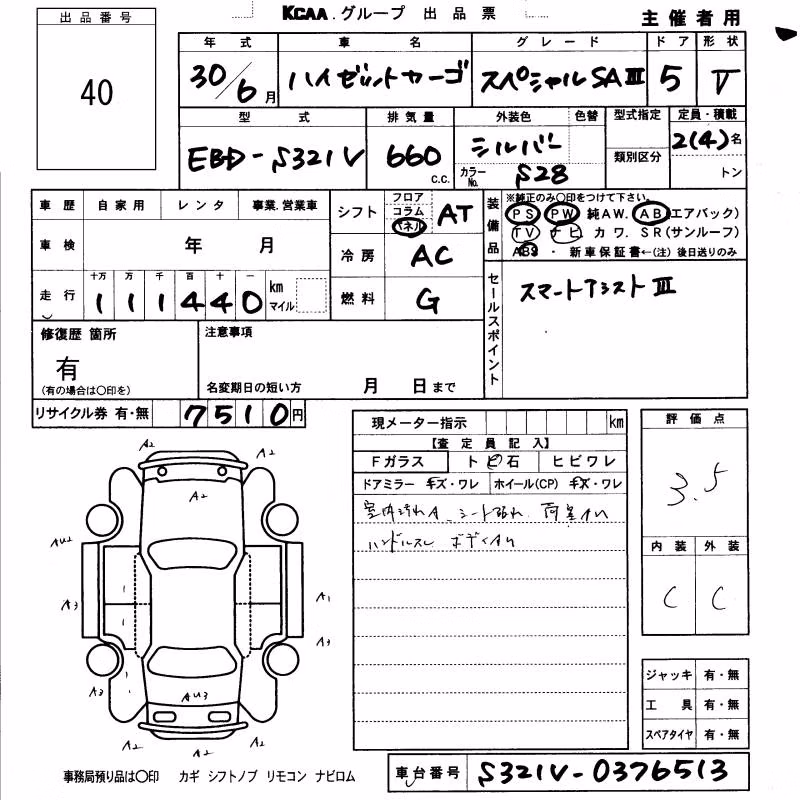 KCAA.グループ 出品票
主催者用
出品番号
40
年式 車名 グレード ドア 形状
30/6月 ハイゼットカーゴ スペシャルSAⅢ 5 V
型式 排気量 外装色 色替 型式指定 定員・積載
EBD-S321V 660 C.C. シルバー 類別区分 2(4)名
カラーNo. S28 トン
車歴 自家用 レンタ 事業.営業車
車検 年 月
走行 十万 万 千 百 十 一 km マイル
1 1 1 4 4 0
シフト フロア コラム パネル AT
冷房 AC
燃料 G
装備品 ※純正のみ○印をつけて下さい。
PS PW 純AW. AB(エアバック)
TV ナビ カワ. SR(サンルーフ)
ABS ・ 新車保証書←(注)後日送りのみ
セールスポイント スマートアシストⅢ
修復歴 箇所
有
(有の場合は○印を)
注意事項
名変期日の短い方 月 日まで
リサイクル券 有・無 7510円
現メーター指示 km
【査定員記入】
Fガラス トビ石 ヒビワレ
ドアミラー キズ・ワレ ホイール(CP) キズ・ワレ
室内汚れA、シート破れ
ハンドルスレ
評価点
3.5
内装 外装
C C
ジャッキ 有・無
工具 有・無
スペアタイヤ 有・無
A2 A2
A2
AU2
A3 A1
A3
A3
AU3
A2 A2 A2
事務局預り品は○印 カギ シフトノブ リモコン ナビロム
車台番号 S321V-0376513